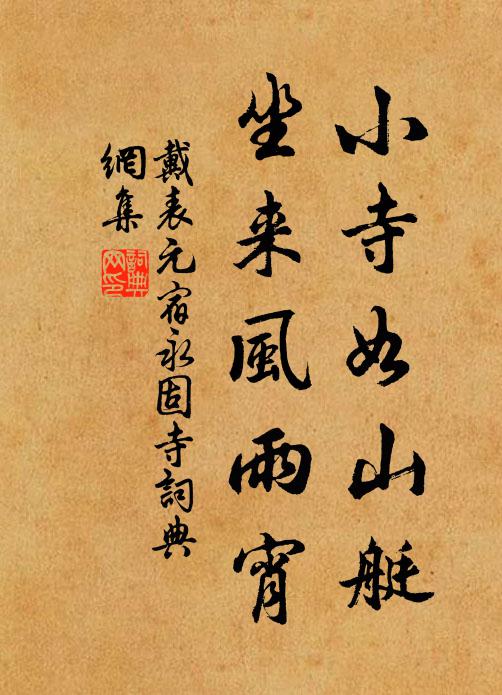 小寺如山艇
坐来風雨宵
戴表元宿永固寺詞典
網集
詞典
网印